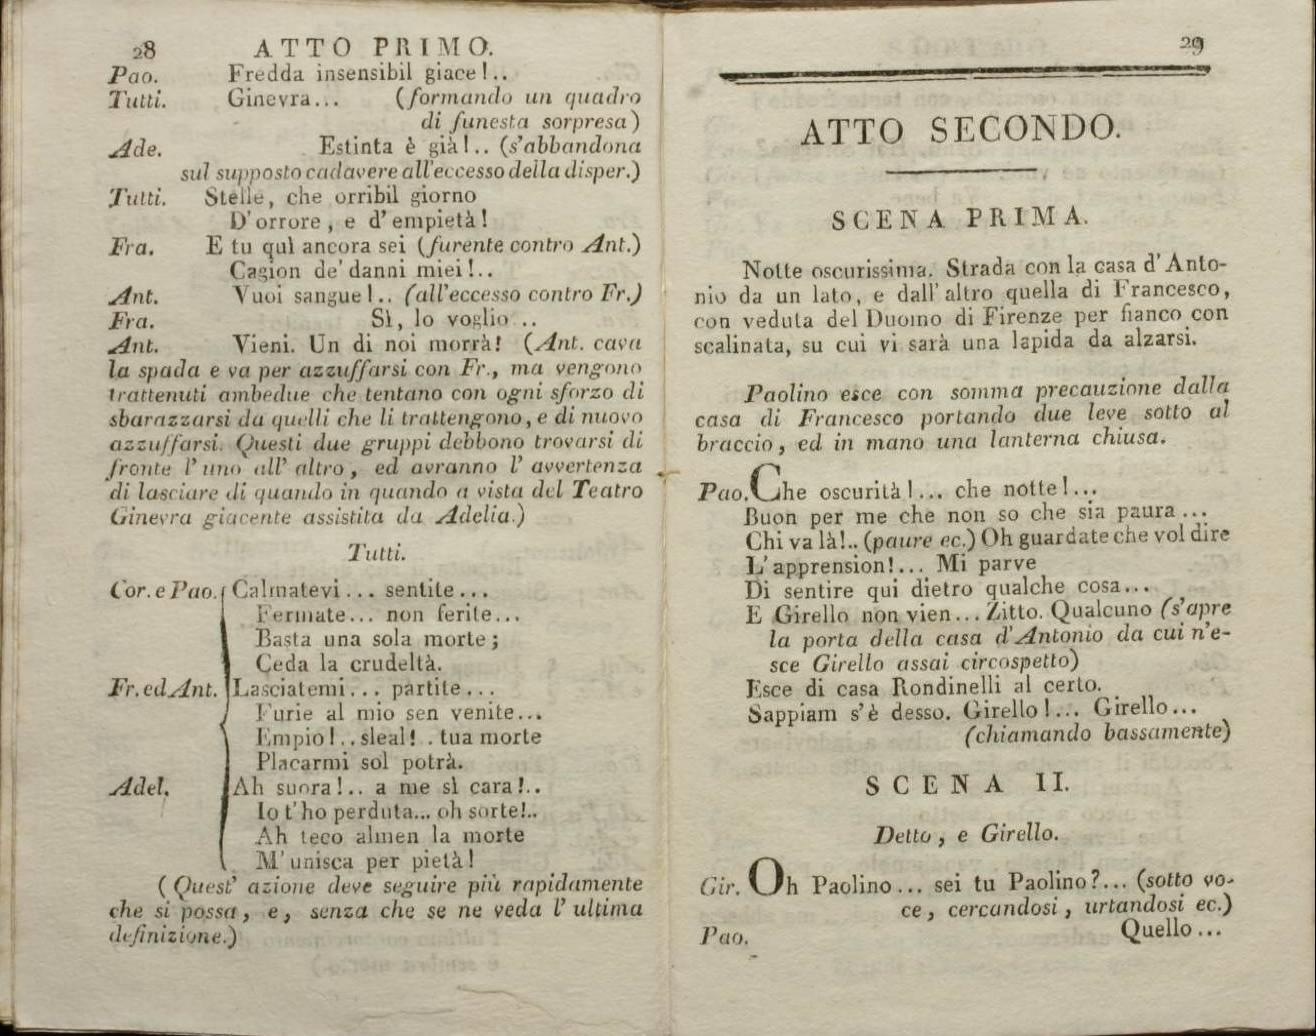 28 ATTO PRIMO.
Pao. Fredda insensibil giace!..
Tutti. Ginevra... (formando un quadro
di funesta sorpresa)
Ade. Estinta è già!.. (s'abbandona
sul supposto cadavere all'eccesso della disper.)
Tutti. Stelle, che orribil giorno
D'orrore, e d'empietà!
Fra. E tu quì ancora sei (furente contro Ant.)
Cagion de' danni miei!..
Ant. Vuoi sangue!.. (all'eccesso contro Fr.)
Fra. Sì, lo voglio...
Ant. Vieni. Un di noi morrà! (Ant. cava
la spada e va per azzuffarsi con Fr., ma vengono
trattenuti ambedue che tentano con ogni sforzo di
sbarazzarsi da quelli che li trattengono, e di nuovo
azzuffarsi. Questi due gruppi debbono trovarsi di
fronte l'uno all'altro, ed avranno l'avvertenza
di lasciare di quando in quando a vista del Teatro
Ginevra giacente assistita da Adelia.)
Tutti.
Cor. e Pao. Calmatevi... sentite...
Fermate... non ferite...
Basta una sola morte;
Ceda la crudeltà.
Fr. ed Ant. Lasciatemi... partite...
Furie al mio sen venite...
Empio!.. sleal!.. tua morte
Placarmi sol potrà.
Adel. Ah suora!.. a me sì cara!..
Io t'ho perduta... oh sorte!..
Ah teco almen la morte
M'unisca per pietà!
(Quest' azione deve seguire più rapidamente
che si possa, e, senza che se ne veda l'ultima
definizione.)
29
ATTO SECONDO.
SCENA PRIMA.
Notte oscurissima. Strada con la casa d'Anto-
nio da un lato, e dall'altro quella di Francesco,
con veduta del Duomo di Firenze per fianco con
scalinata, su cui vi sarà una lapida da alzarsi.
Paolino esce con somma precauzione dalla
casa di Francesco portando due leve sotto al
braccio, ed in mano una lanterna chiusa.
Pao. Che oscurità!... che notte!...
Buon per me che non so che sia paura...
Chi va là!.. (paure ec.) Oh guardate che vol dire
L'apprension!... Mi parve
Di sentire qui dietro qualche cosa...
E Girello non vien... Zitto. Qualcuno (s'apre
la porta della casa d'Antonio da cui n'e-
sce Girello assai circospetto)
Esce di casa Rondinelli al certo.
Sappiam s'è desso. Girello!... Girello...
(chiamando bassamente)
SCENA II.
Detto, e Girello.
Gir. Oh Paolino... sei tu Paolino?... (sotto vo-
ce, cercandosi, urtandosi ec.)
Pao. Quello...